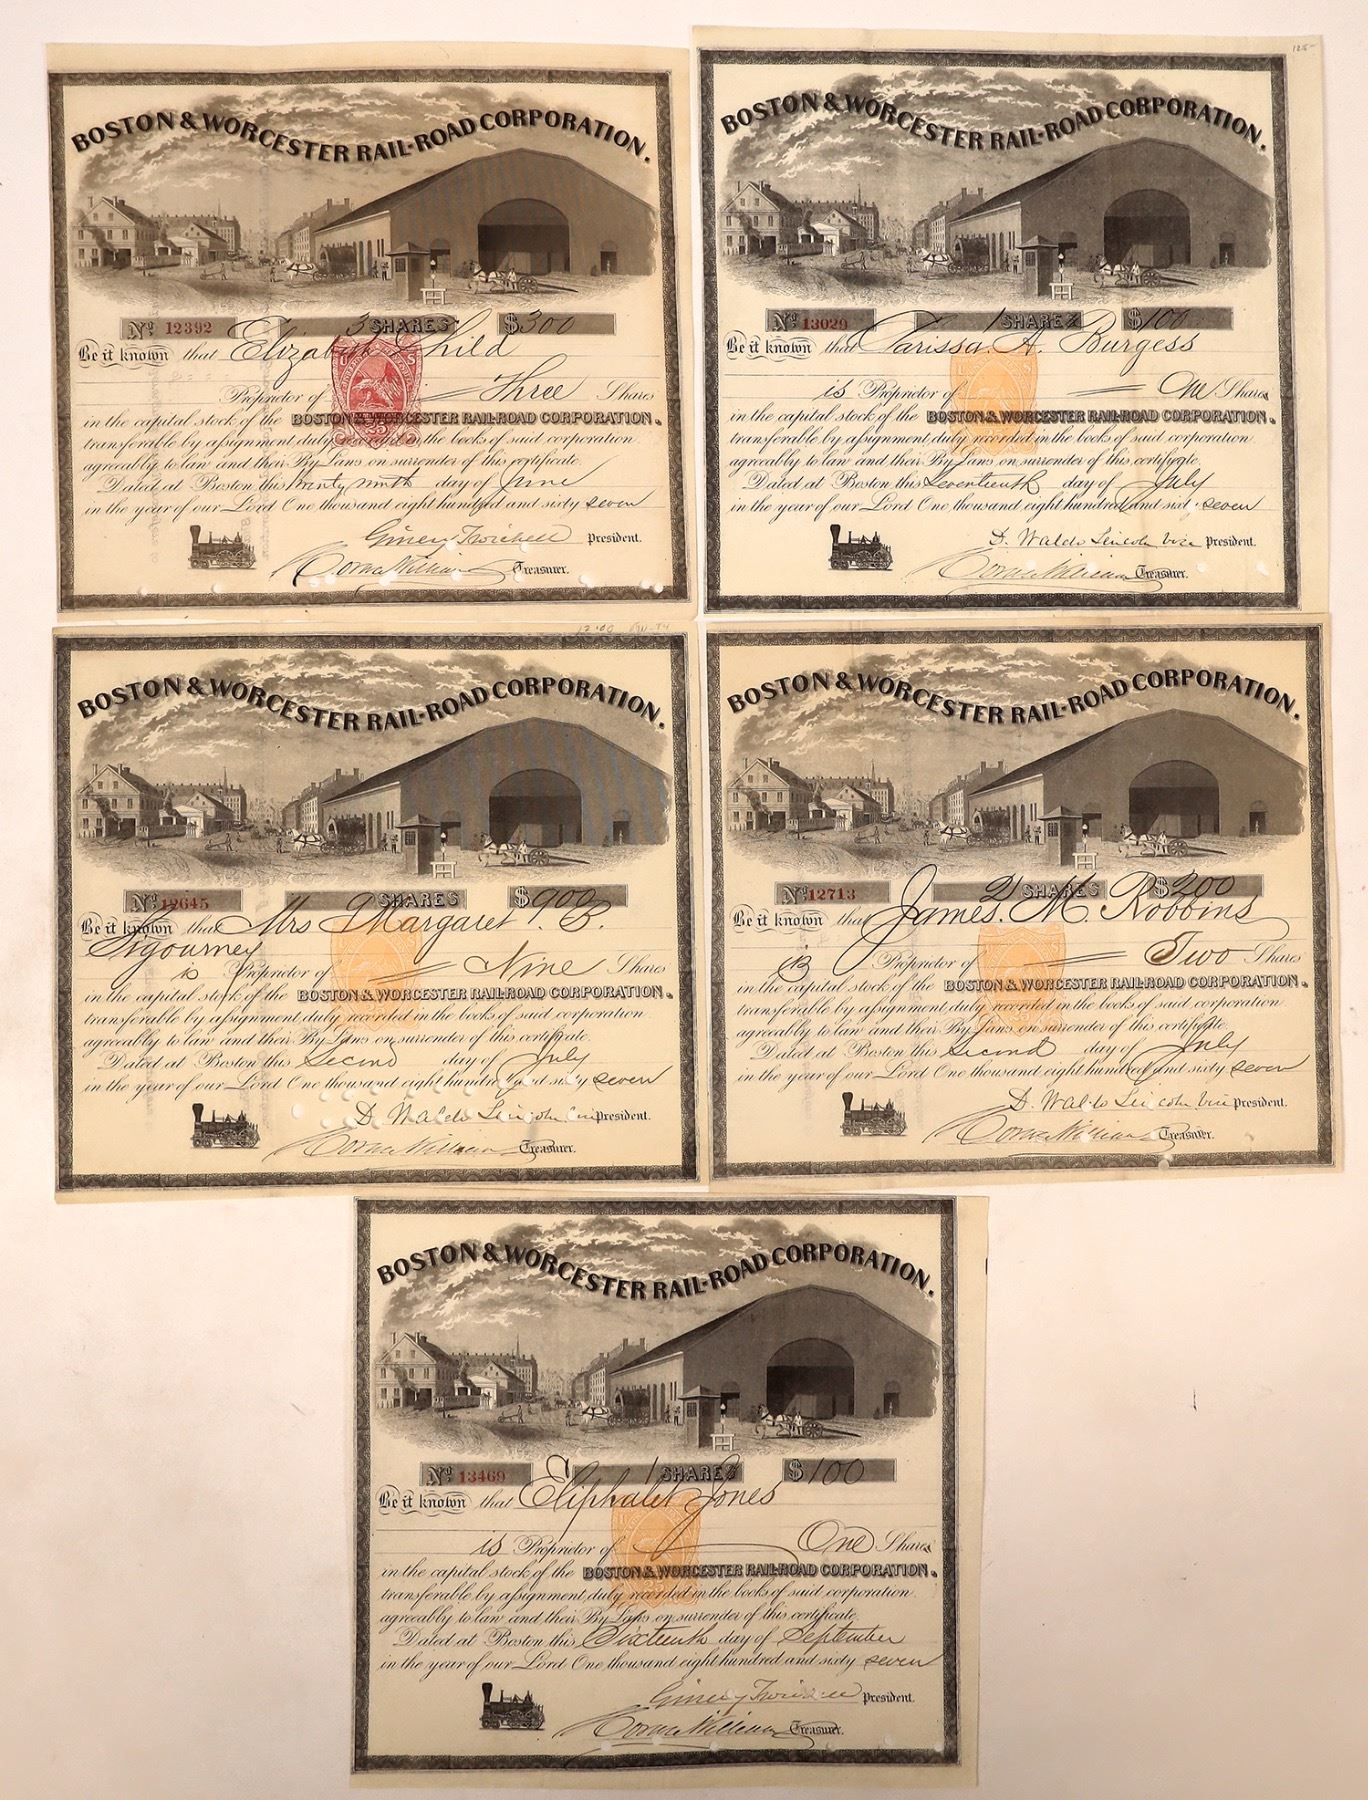 BOSTON & WORCESTER RAIL-ROAD CORPORATION.
No 12392 3 SHARES $300
Be it known that Elizabeth Child
Proprietor of Three Shares
in the capital stock of the BOSTON & WORCESTER RAIL-ROAD CORPORATION.
transferable by assignment duly recorded in the books of said corporation
agreeably to law and their By Laws on surrender of this certificate.
Dated at Boston this twenty ninth day of June
in the year of our Lord One thousand eight hundred and sixty seven
Ginery Twichell President.
Treasurer.
125-
BOSTON & WORCESTER RAIL-ROAD CORPORATION.
No 13029 1 SHARES $100
Be it known that Clarissa A. Burgess
is Proprietor of One Shares
in the capital stock of the BOSTON & WORCESTER RAIL-ROAD CORPORATION.
transferable by assignment duly recorded in the books of said corporation
agreeably to law and their By Laws on surrender of this certificate.
Dated at Boston this Seventeenth day of July
in the year of our Lord One thousand eight hundred and sixty seven
D. Waldo Lincoln Vice President.
Treasurer.
BOSTON & WORCESTER RAIL-ROAD CORPORATION.
No 12645 9 SHARES $900
Be it known that Mrs Margaret B.
Sigourney
is Proprietor of Nine Shares
in the capital stock of the BOSTON & WORCESTER RAIL-ROAD CORPORATION.
transferable by assignment duly recorded in the books of said corporation
agreeably to law and their By Laws on surrender of this certificate.
Dated at Boston this Second day of July
in the year of our Lord One thousand eight hundred and sixty seven
D. Waldo Lincoln Vice President.
Treasurer.
BOSTON & WORCESTER RAIL-ROAD CORPORATION.
No 12713 2 SHARES $200
Be it known that James. M. Robbins
is Proprietor of Two Shares
in the capital stock of the BOSTON & WORCESTER RAIL-ROAD CORPORATION.
transferable by assignment duly recorded in the books of said corporation
agreeably to law and their By Laws on surrender of this certificate.
Dated at Boston this Second day of July
in the year of our Lord One thousand eight hundred and sixty seven
D. Waldo Lincoln Vice President.
Treasurer.
BOSTON & WORCESTER RAIL-ROAD CORPORATION.
No 13469 1 SHARES $100
Be it known that Eliphalet Jones
is Proprietor of One Shares
in the capital stock of the BOSTON & WORCESTER RAIL-ROAD CORPORATION.
transferable by assignment duly recorded in the books of said corporation
agreeably to law and their By Laws on surrender of this certificate.
Dated at Boston this Sixteenth day of September
in the year of our Lord One thousand eight hundred and sixty seven
Ginery Twichell President.
Treasurer.